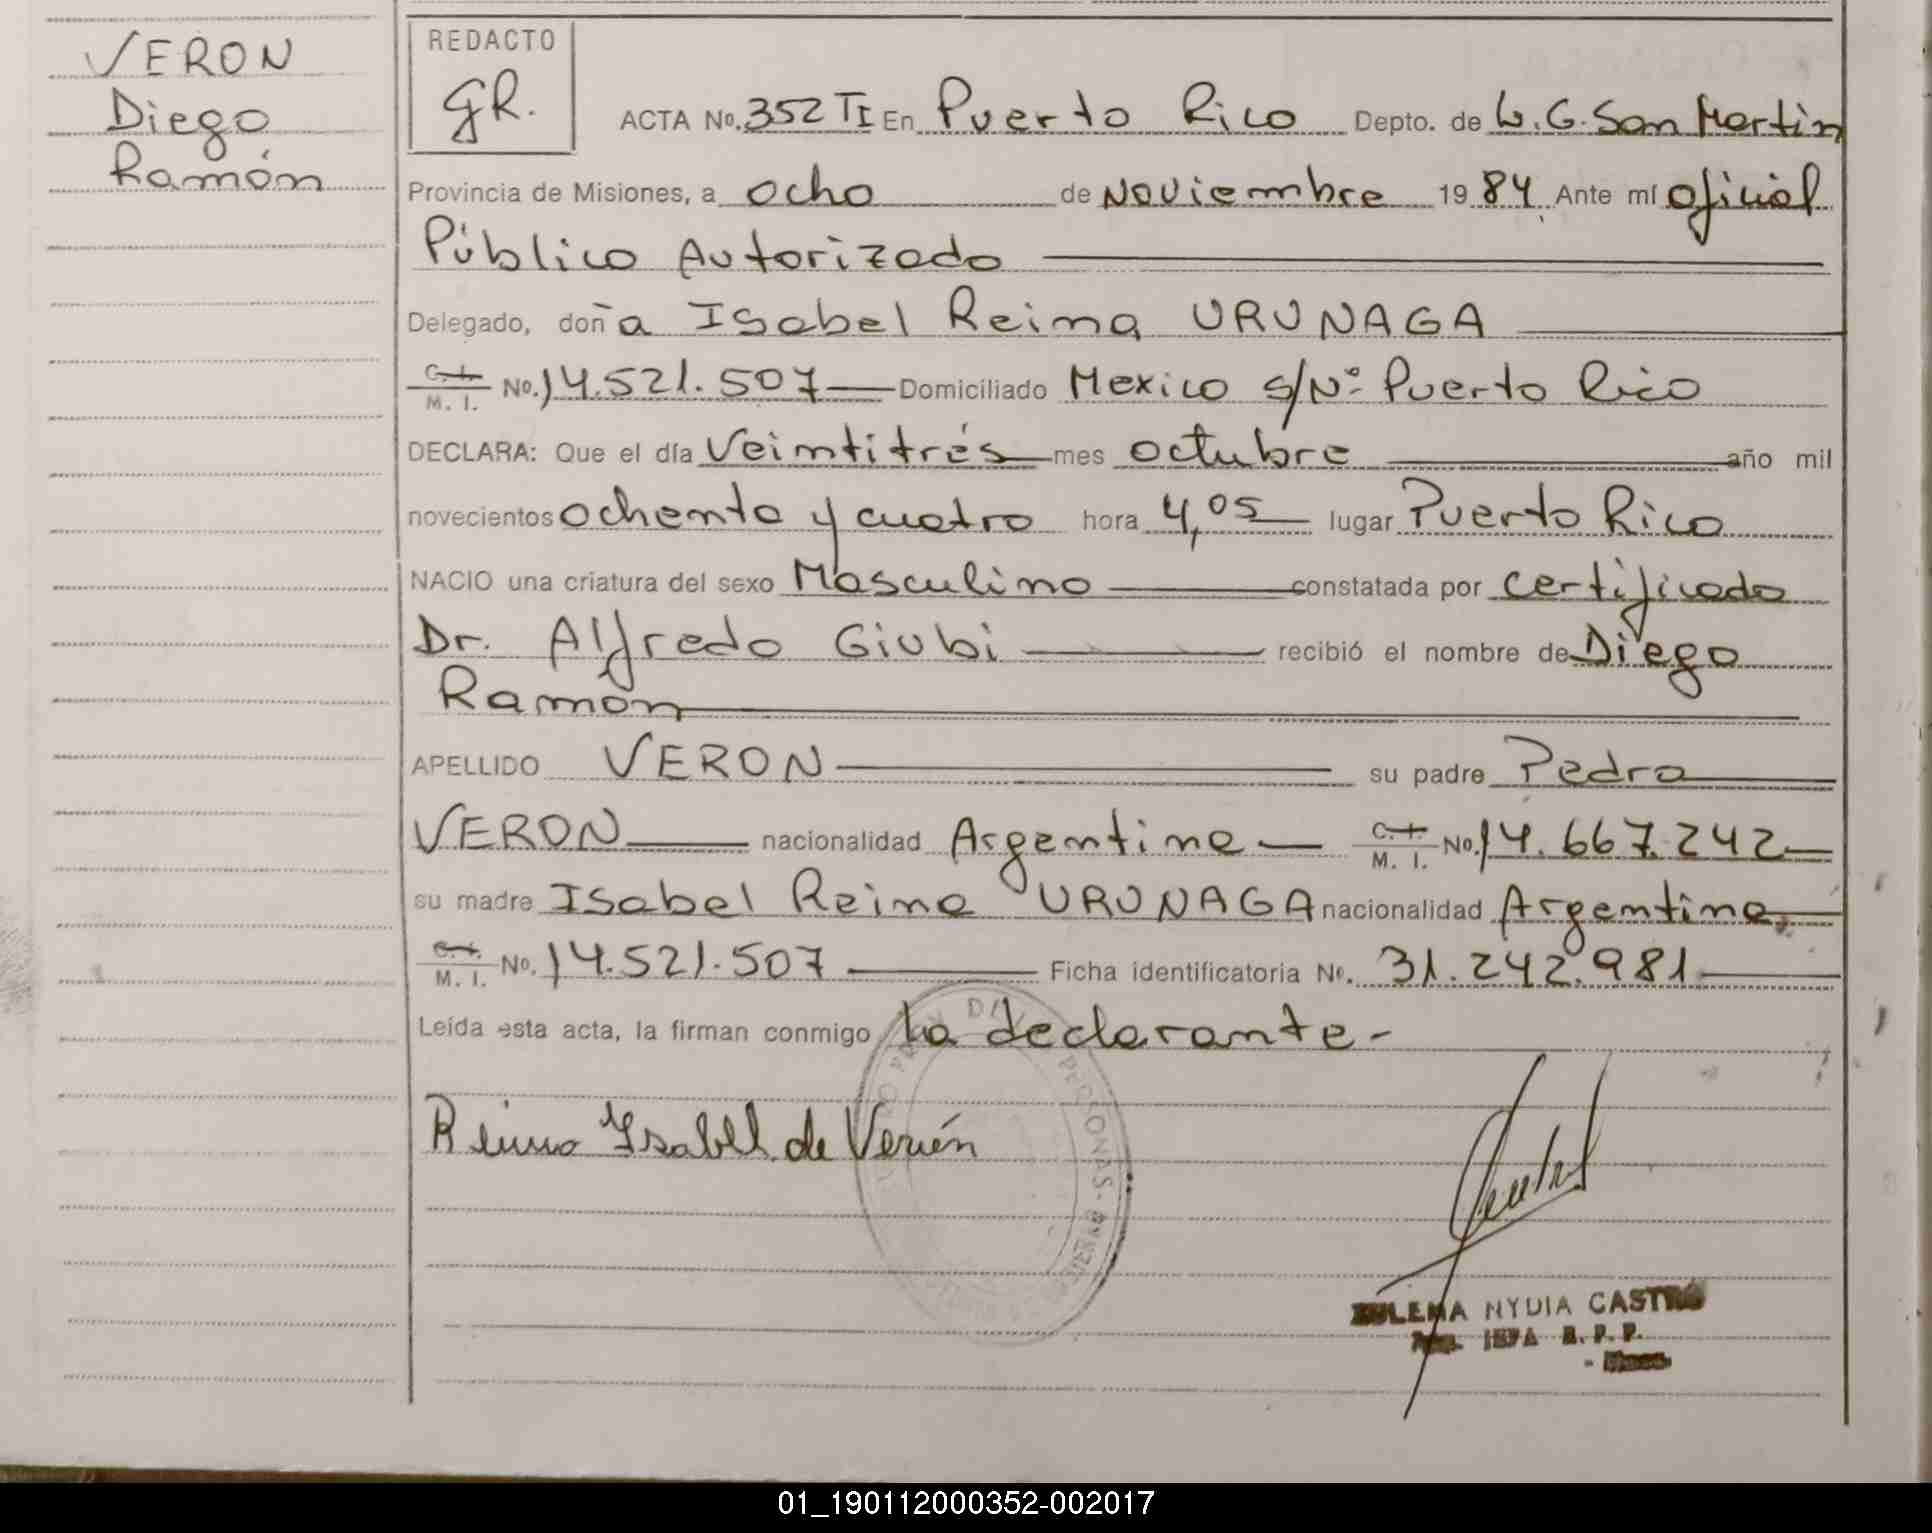 VERON
Diego
Ramón
REDACTO
GR.
ACTA No. 352 TI En Puerto Rico Depto. de L. G. San Martin
Provincia de Misiones, a ocho de Noviembre 19 84 Ante mí Oficial
Público Autorizado
Delegado, doña Isabel Reina URUNAGA
C. I. M. I. No. 14.521.507 Domiciliado Mexico S/Nº Puerto Rico
DECLARA: Que el día Veintitrés mes octubre año mil
novecientos ochenta y cuatro hora 4,05 lugar Puerto Rico
NACIO una criatura del sexo Masculino constatada por certificado
Dr. Alfredo Giubi recibió el nombre de Diego
Ramón
APELLIDO VERON su padre Pedro
VERON nacionalidad Argentina C. I. M. I. No. 14.667.242
su madre Isabel Reina URUNAGA nacionalidad Argentina
C. I. M. I. No. 14.521.507 Ficha identificatoria No. 31.242.981
Leída esta acta, la firman conmigo La declarante-
Reina Ysabel de Verón
PERSONAS
NYDIA CASTRO
01_190112000352-002017